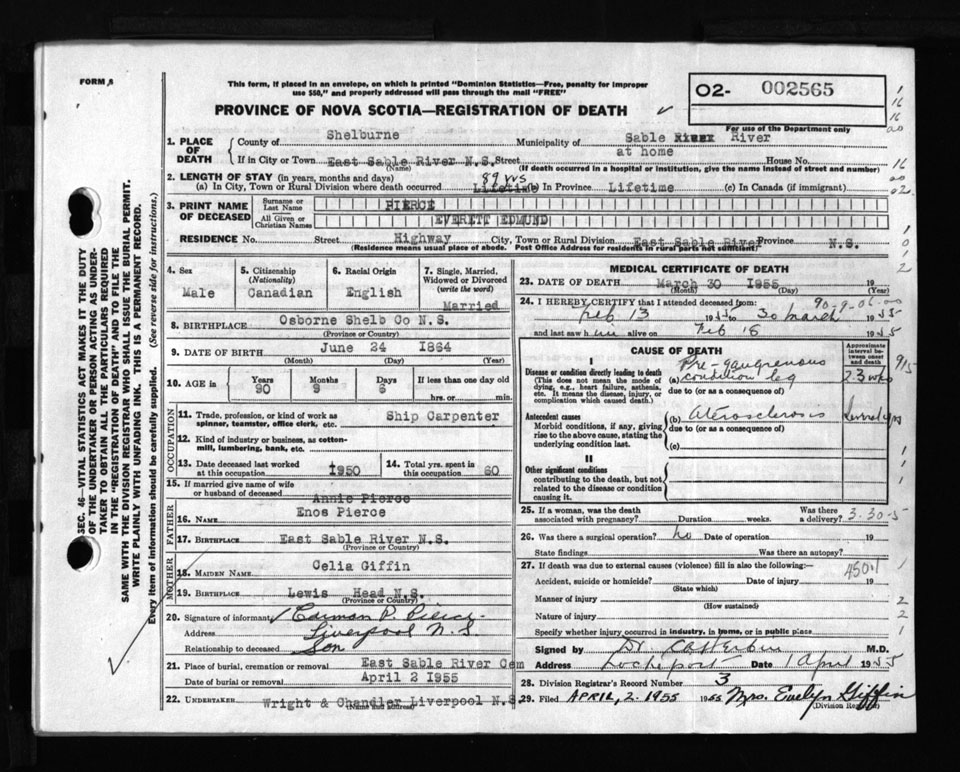 FORM
This form, if placed in an envelope, on which is printed "Dominion Statistics—Free, penalty for improper
use $50," and properly addressed will pass through the mail "FREE"
PROVINCE OF NOVA SCOTIA—REGISTRATION OF DEATH
O2- 002565
For use of the Department only
1. PLACE OF DEATH
County of Shelburne Municipality of Sable River River
If in City or Town East Sable River N.S. Street at home House No.
(Name) (If death occurred in a hospital or institution, give the name instead of street and number)
2. LENGTH OF STAY (in years, months and days)
(a) In City, Town or Rural Division where death occurred Lifetime 89 yrs (b) In Province Lifetime (c) In Canada (if immigrant)
3. PRINT NAME OF DECEASED
Surname or Last Name PIERCE
All Given or Christian Names EVERETT EDMUND
RESIDENCE No. Street Highway City, Town or Rural Division East Sable River Province N.S.
(Residence means usual place of abode. Post Office Address for residents in rural parts not sufficient)
4. Sex Male
5. Citizenship (Nationality) Canadian
6. Racial Origin English
7. Single, Married, Widowed or Divorced (write the word) Married
8. BIRTHPLACE Osborne Shelb Co N.S.
(Province or Country)
9. DATE OF BIRTH June 24 1864
(Month) (Day) (Year)
10. AGE in Years 90 Months 9 Days 6 If less than one day old hrs. or min.
OCCUPATION
11. Trade, profession, or kind of work as spinner, teamster, office clerk, etc. Ship Carpenter
12. Kind of industry or business, as cotton-mill, lumbering, bank, etc.
13. Date deceased last worked at this occupation 1950
14. Total yrs. spent in this occupation 60
15. If married give name of wife or husband of deceased Annie Pierce
FATHER
16. NAME Enos Pierce
17. BIRTHPLACE East Sable River N.S.
(Province or Country)
MOTHER
18. MAIDEN NAME Celia Giffin
19. BIRTHPLACE Lewis Head N.S.
(Province or Country)
20. Signature of informant Carman P. Pierce
Address Liverpool N.S.
Relationship to deceased Son
21. Place of burial, cremation or removal East Sable River Cem
Date of burial or removal April 2 1955
22. UNDERTAKER Wright & Chandler Liverpool N.S.
(Name and address)
MEDICAL CERTIFICATE OF DEATH
23. DATE OF DEATH March 30 1955 19
(Month) (Day) (Year)
24. I HEREBY CERTIFY that I attended deceased from: 90-9-06-00
Feb 13 1955 to 30 March 1955
and last saw him alive on Feb 18 1955
CAUSE OF DEATH
Approximate interval between onset and death
I
Disease or condition directly leading to death
(This does not mean the mode of dying, e.g., heart failure, asthenia, etc. It means the disease, injury, or complication which caused death.)
(a) Pre-gangrenous condition leg 2-3 wks
due to (or as a consequence of)
Antecedent causes
Morbid conditions, if any, giving rise to the above cause, stating the underlying condition last.
(b) Aterosclerosis several yrs
due to (or as a consequence of)
(c)
II
Other significant conditions
contributing to the death, but not related to the disease or condition causing it.
25. If a woman, was the death associated with pregnancy? Duration weeks. Was there a delivery? 3-30-5
26. Was there a surgical operation? No Date of operation 19
State findings Was there an autopsy?
27. If death was due to external causes (violence) fill in also the following:—
4501
Accident, suicide or homicide? Date of injury 19
(State which)
Manner of injury
(How sustained)
Nature of injury
Specify whether injury occurred in industry, in home, or in public place
Signed by Dr. M.D.
Address Lockeport Date 1 April 1955
28. Division Registrar's Record Number 3
29. Filed APRIL, 2. 1955 1955 Mrs. Evelyn Giffin
(Division Registrar)
SEC. 46—VITAL STATISTICS ACT MAKES IT THE DUTY
OF THE UNDERTAKER OR PERSON ACTING AS UNDER-
TAKER TO OBTAIN ALL THE PARTICULARS REQUIRED
IN THE "REGISTRATION OF DEATH" AND TO FILE THE
SAME WITH THE DIVISION REGISTRAR WHO SHALL ISSUE THE BURIAL PERMIT.
WRITE PLAINLY WITH UNFADING INK—THIS IS A PERMANENT RECORD.
Every item of information should be carefully supplied. (See reverse side for instructions.)